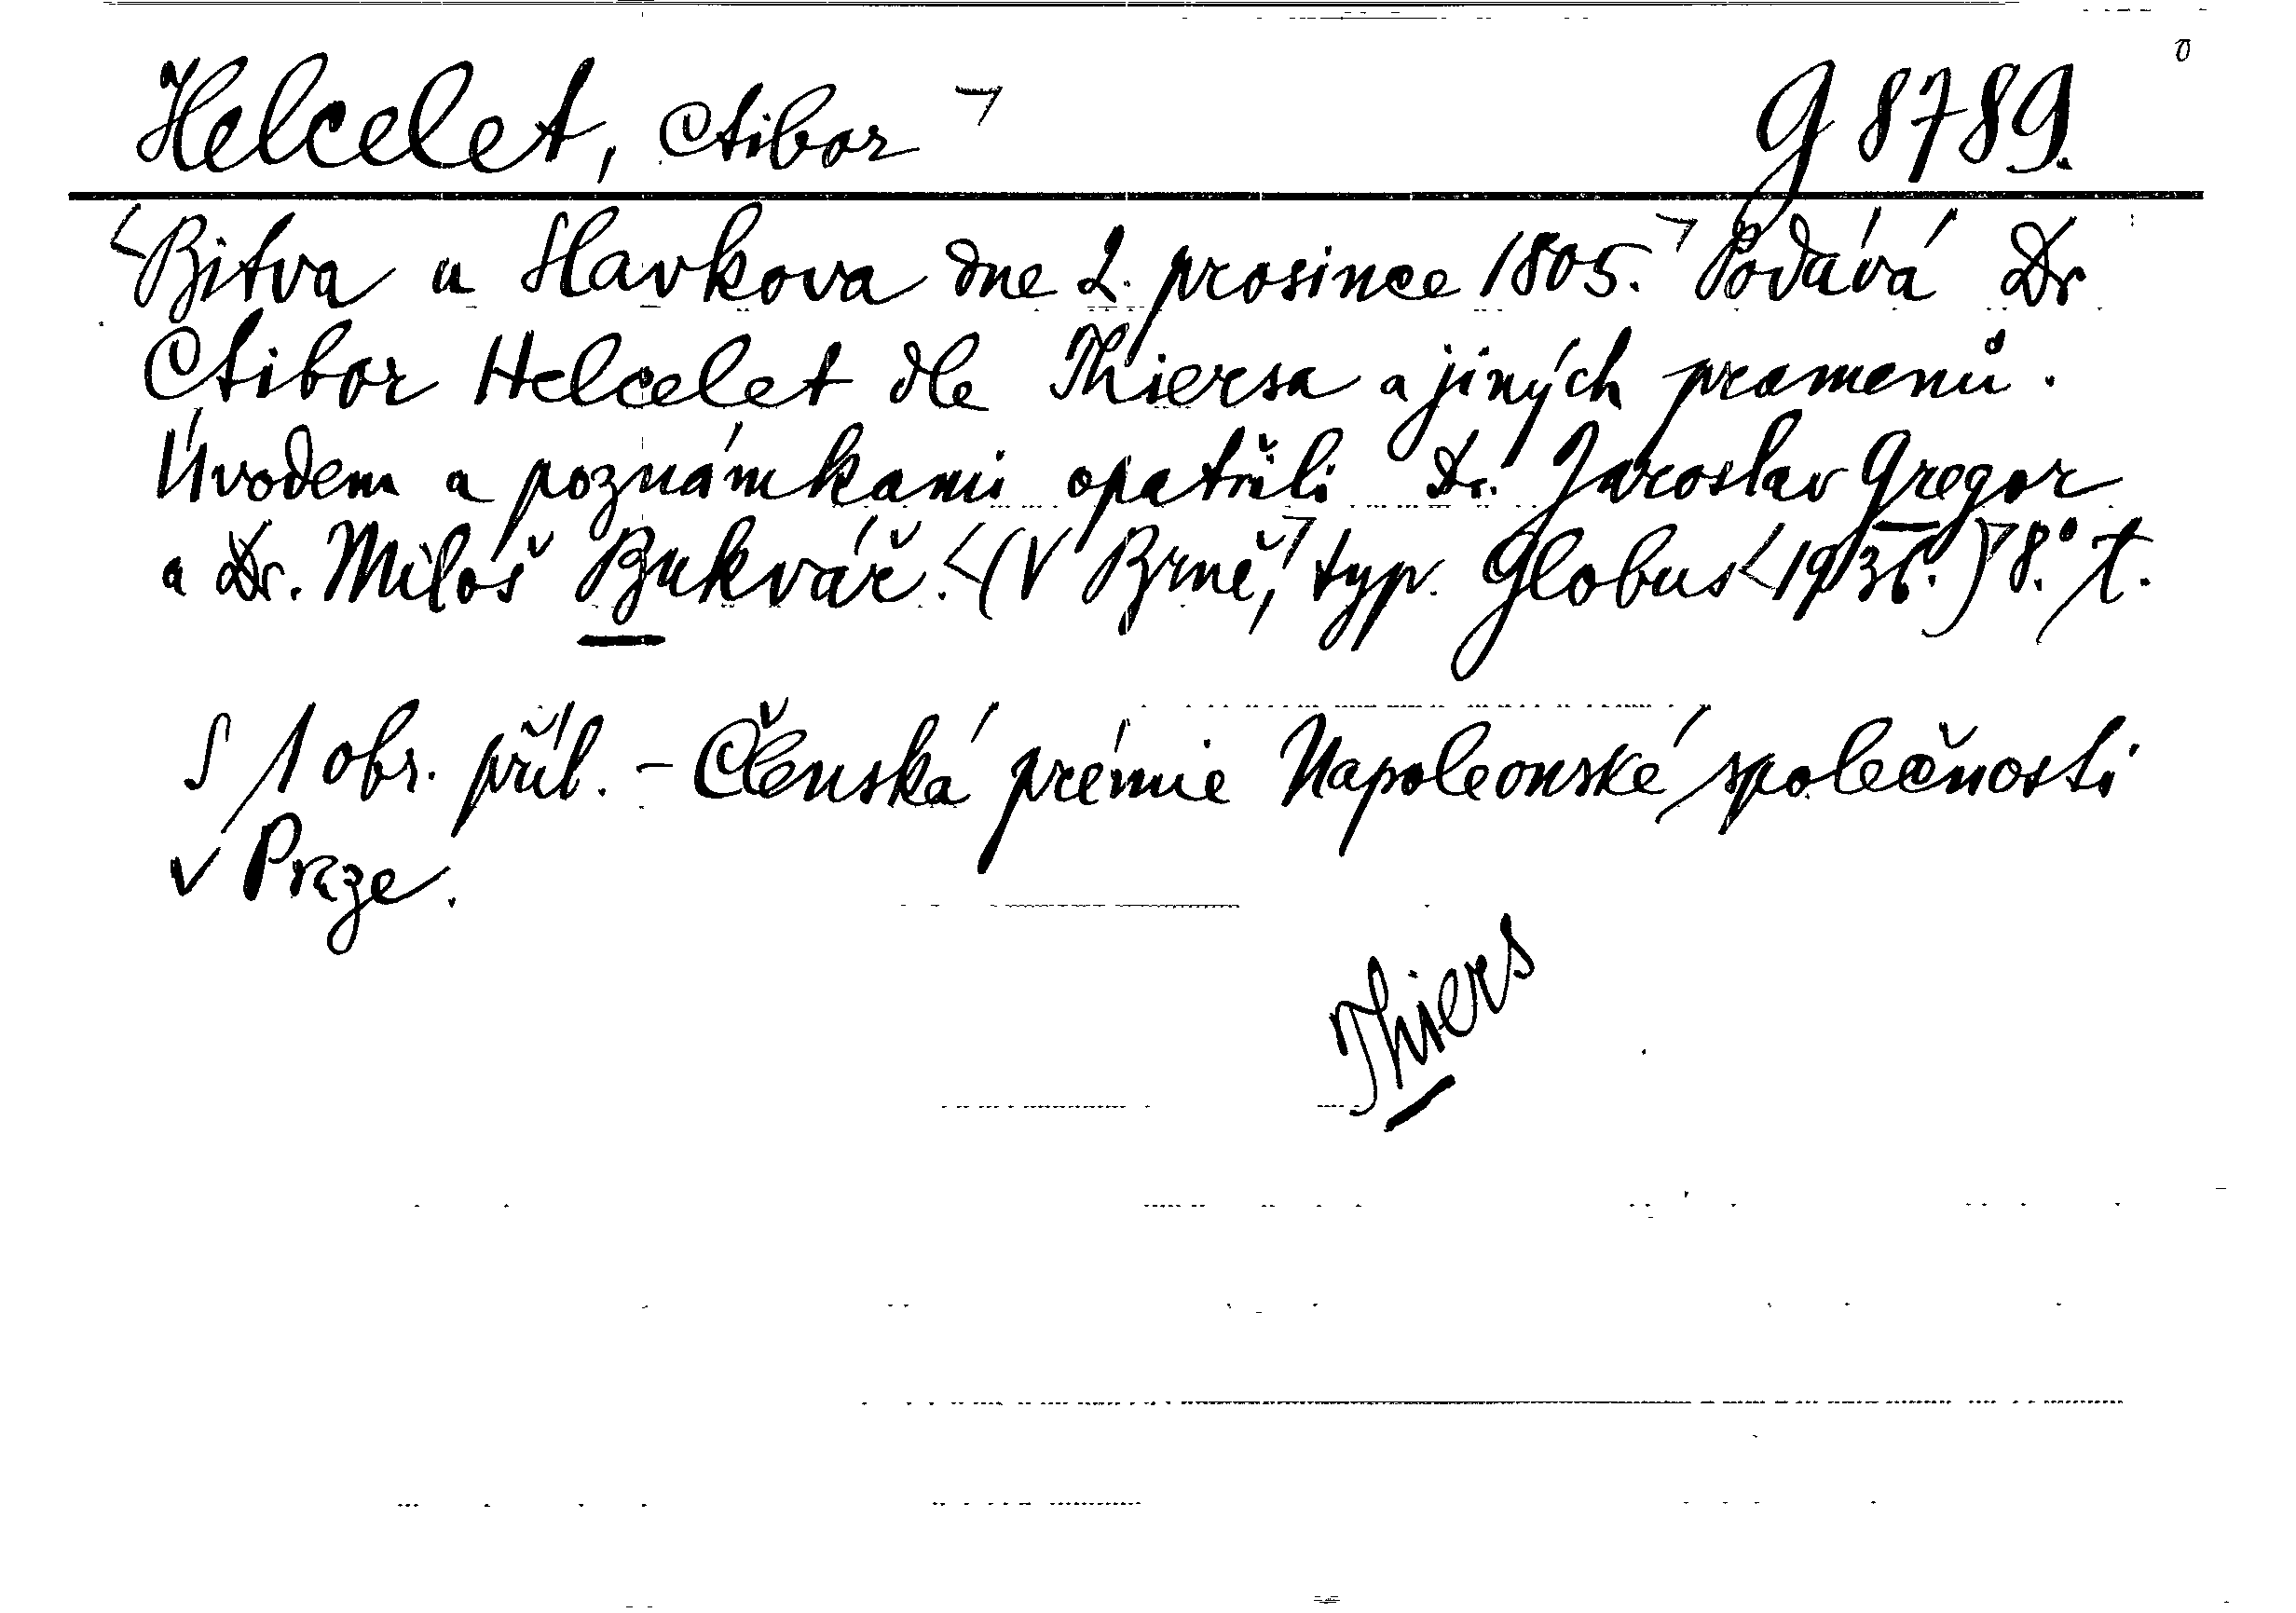 Helcelet, Ctibor ¬ G 8789.
<Bitva u Slavkova dne 2. prosince 1805.¬ Podává Dr
Ctibor Helcelet dle Thiersa a jiných pramenů.
Úvodem a poznámkami opatřili Dr. Jaroslav Gregor
a Dr. Miloš Bukvář. <(V Brně,¬ typ. Globus <1936.)¬ 8.° t.
S 1 obr. příl. - Členská prémie Napoleonské společnosti
v Praze.
Thiers